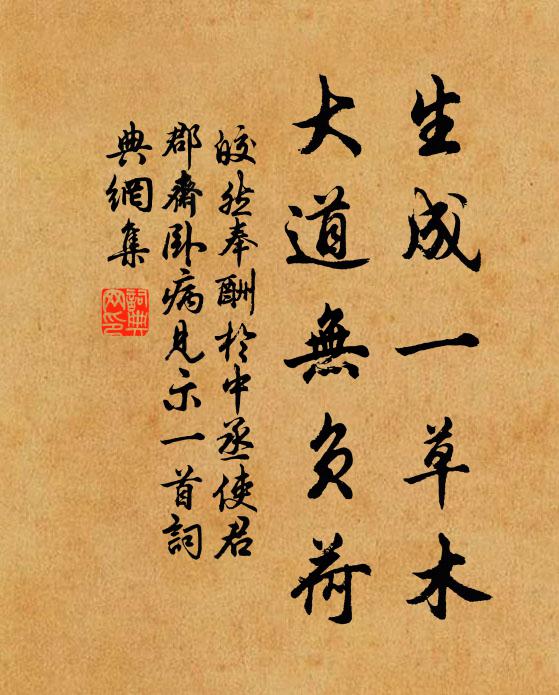 生成一草木
大道無負荷
皎然奉酬於中丞使君
郡齋臥病見示一首詞
典網集
詞典網印